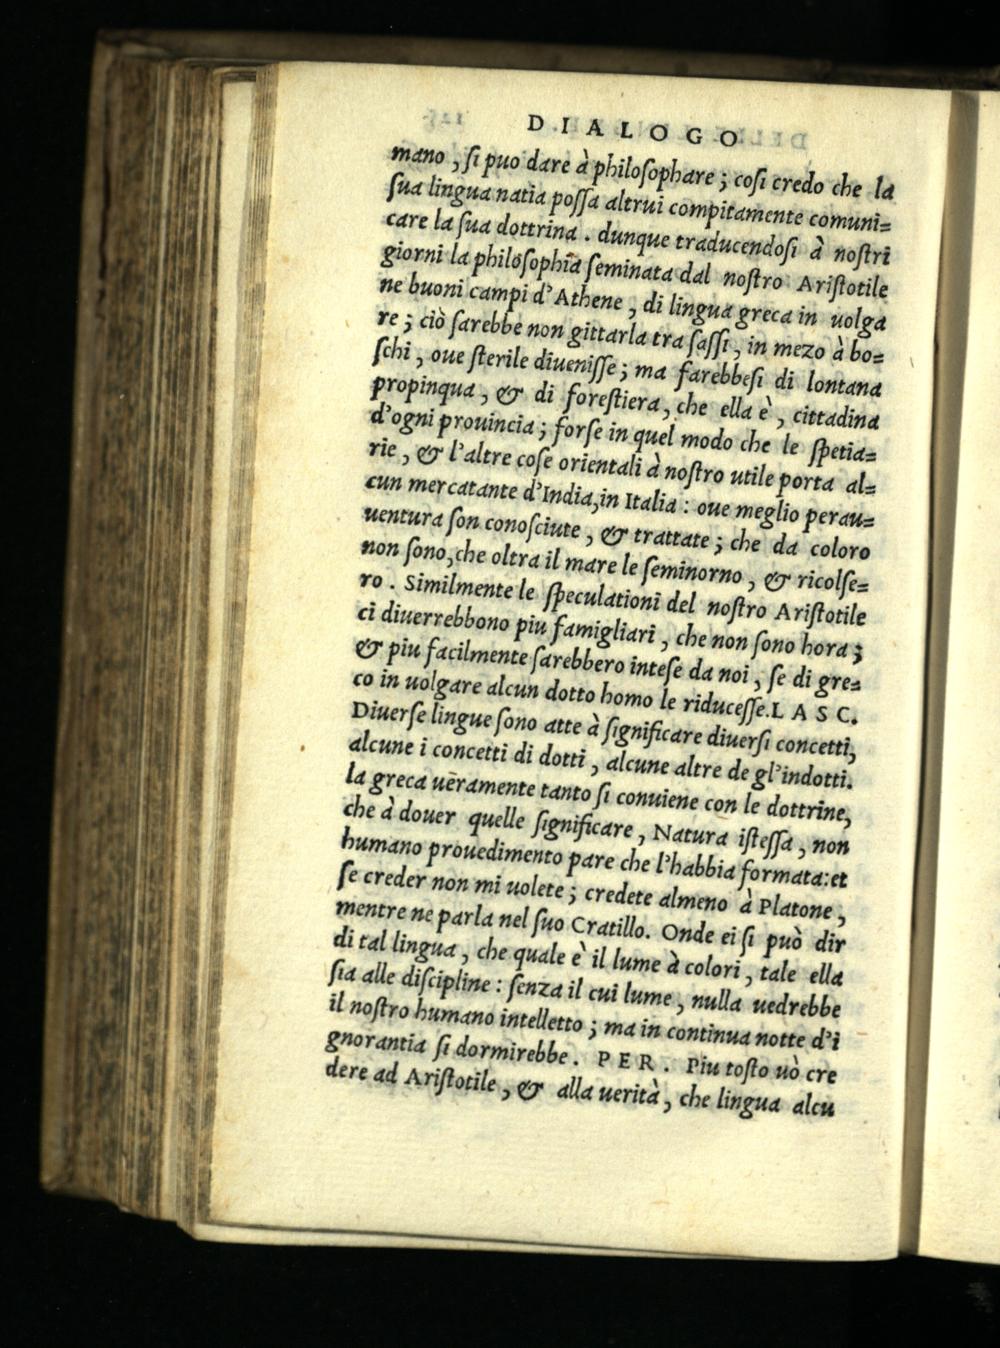 DIALOGO
mano, ſi puo dare à philoſophare; coſi credo che la
ſua lingua natia poſſa altrui compitamente comuni=
care la ſua dottrina. dunque traducendoſi à noſtri
giorni la philoſophia ſeminata dal noſtro Ariſtotile
ne buoni campi d'Athene, di lingua greca in uolga
re; ciò ſarebbe non gittarla tra ſaſſi, in mezo à bo=
ſchi, oue ſterile diueniſſe; ma farebbeſi di lontana
propinqua, & di foreſtiera, che ella è, cittadina
d'ogni prouincia; forſe in quel modo che le ſpetia=
rie, & l'altre coſe orientali à noſtro utile porta al=
cun mercatante d'India, in Italia: oue meglio perau=
uentura ſon conoſciute, & trattate; che da coloro
non ſono, che oltra il mare le ſeminorno, & ricolſe=
ro. Similmente le ſpeculationi del noſtro Ariſtotile
ci diuerrebbono piu famigliari, che non ſono hora;
& piu facilmente ſarebbero inteſe da noi, ſe di gre=
co in uolgare alcun dotto homo le riduceſſe. LASC.
Diuerſe lingue ſono atte à ſignificare diuerſi concetti,
alcune i concetti di dotti, alcune altre de gl'indotti.
la greca uēramente tanto ſi conuiene con le dottrine,
che à douer quelle ſignificare, Natura iſteſſa, non
humano prouedimento pare che l'habbia formata: et
ſe creder non mi uolete; credete almeno à Platone,
mentre ne parla nel ſuo Cratillo. Onde ei ſi può dir
di tal lingua, che quale è il lume à colori, tale ella
ſia alle diſcipline: ſenza il cui lume, nulla uedrebbe
il noſtro humano intelletto; ma in continua notte d'i
gnorantia ſi dormirebbe. PER. Piu toſto uò cre
dere ad Ariſtotile, & alla uerità, che lingua alcu